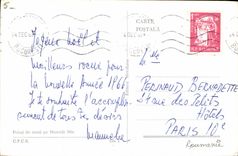 5-
CARTE
POSTALA
Joyeux Noël et
meilleurs voeux pour
la nouvelle Année 1966
Je te souhaite l'accomplis
sement de tous tes désirs
Manuela
C.P.C.S.
PERNAUD BERNADETTE
Rue des Petits
Hôtels
PARIS 10e
Roumanie